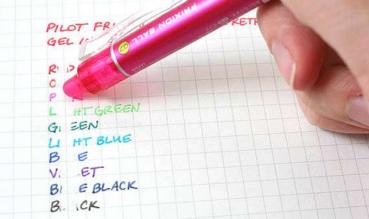 PILOT FRI RETR
GEL IN
R D
O
P
L HT GREEN
G EEN
LI HT BLUE
B E
V ET
BL E BLACK
B CK
FRIXION BALL